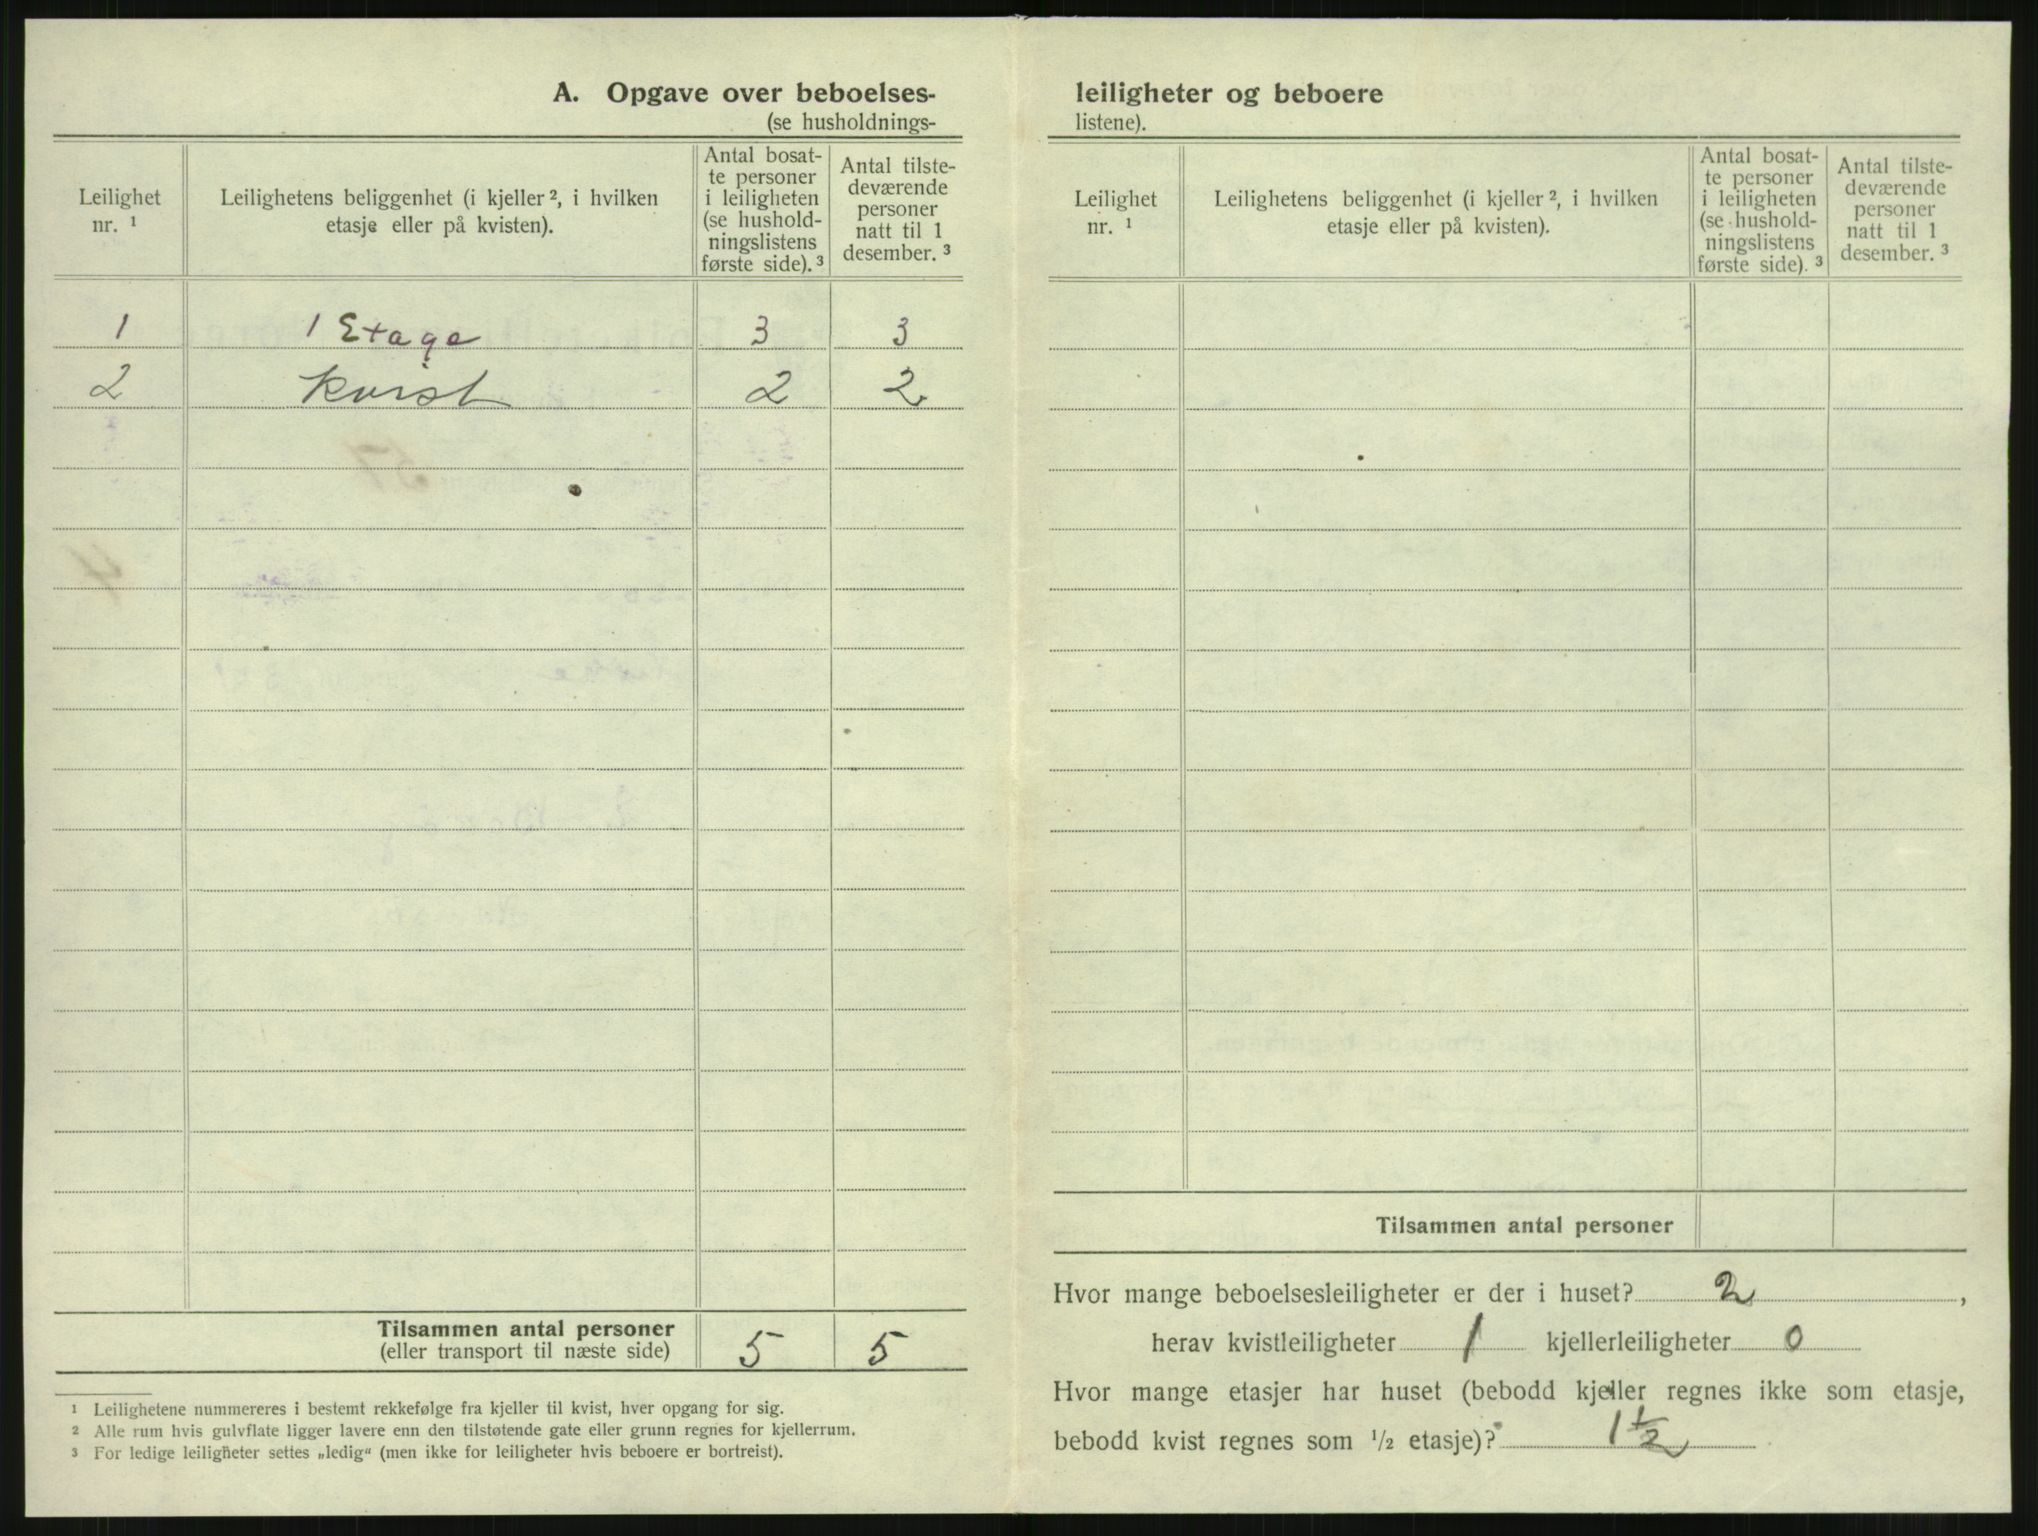 A. Opgave over beboelses-
(se husholdnings-
Leilighet
nr. ¹
Leilighetens beliggenhet (i kjeller ², i hvilken
etasje eller på kvisten).
Antal bosat-
te personer
i leiligheten
(se hushold-
ningslistens
første side). ³
Antal tilste-
deværende
personer
natt til 1
desember. ³
1 1 Etage 3 3
2 Kvist 2 2
Tilsammen antal personer
(eller transport til næste side) 5 5
¹ Leilighetene nummereres i bestemt rekkefølge fra kjeller til kvist, hver opgang for sig.
² Alle rum hvis gulvflate ligger lavere enn den tilstøtende gate eller grunn regnes for kjellerrum.
³ For ledige leiligheter settes „ledig“ (men ikke for leiligheter hvis beboere er bortreist).
leiligheter og beboere
listene).
Leilighet
nr. ¹
Leilighetens beliggenhet (i kjeller ², i hvilken
etasje eller på kvisten).
Antal bosat-
te personer
i leiligheten
(se hushold-
ningslistens
første side). ³
Antal tilste-
deværende
personer
natt til 1
desember. ³
Tilsammen antal personer
Hvor mange beboelsesleiligheter er der i huset? 2,
herav kvistleiligheter 1 kjellerleiligheter 0
Hvor mange etasjer har huset (bebodd kjeller regnes ikke som etasje,
bebodd kvist regnes som ½ etasje)? 1 ½